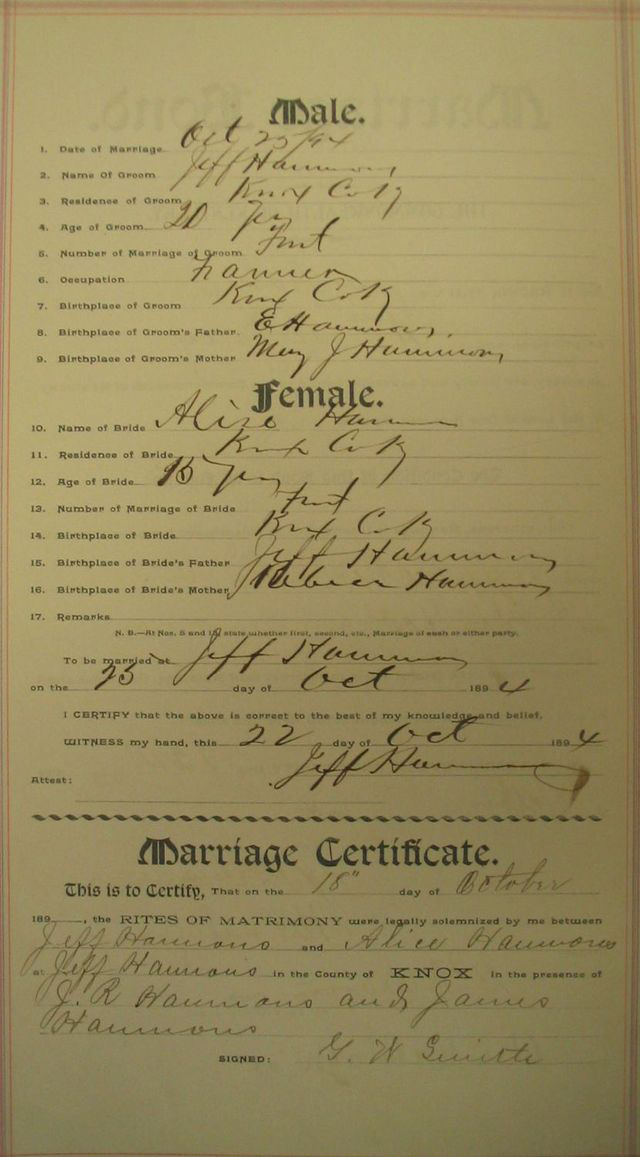 Male.
1. Date of Marriage Oct 25/94
2. Name Of Groom Jeff Hammons
3. Residence of Groom Knox Co Ky
4. Age of Groom 20 yrs
5. Number of Marriage of Groom First
6. Occupation Farmer
7. Birthplace of Groom Knox Co Ky
8. Birthplace of Groom's Father E Hammons
9. Birthplace of Groom's Mother Mary J Hammons
Female.
10. Name of Bride Alise Hammons
11. Residence of Bride Knox Co Ky
12. Age of Bride 15 yrs
13. Number of Marriage of Bride First
14. Birthplace of Bride Knox Co Ky
15. Birthplace of Bride's Father Jeff Hammons
16. Birthplace of Bride's Mother Hammons
17. Remarks
N. B.—At Nos. 5 and 13, state whether first, second, etc., Marriage of each or either party.
To be married at Jeff Hammons
on the 25 day of Oct 1894
I CERTIFY that the above is correct to the best of my knowledge and belief.
WITNESS my hand, this 22 day of Oct 1894
Jeff Hammons
Attest:
Marriage Certificate.
This is to Certify, That on the 18" day of October
189 , the RITES OF MATRIMONY were legally solemnized by me between
Jeff Hammons and Alice Hammons
at Jeff Hammons in the County of KNOX in the presence of
J. R Hammons and James
Hammons
SIGNED: G. W Smith